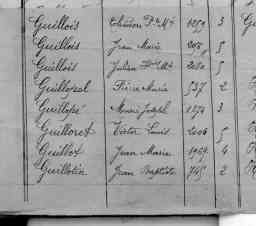 Guillois Pre Mie 1259 3
Guillois Jean Marie 208 5
Guillois Julien Pre Mie 2080 5
Guillopal Pierre Marie 537 2
Guillopé Marie Joseph 1274 3
Guilloret Victor Louis 2006 5
Guillot Jean Marie 1967 4
Guillotin Jean Baptiste 745 2